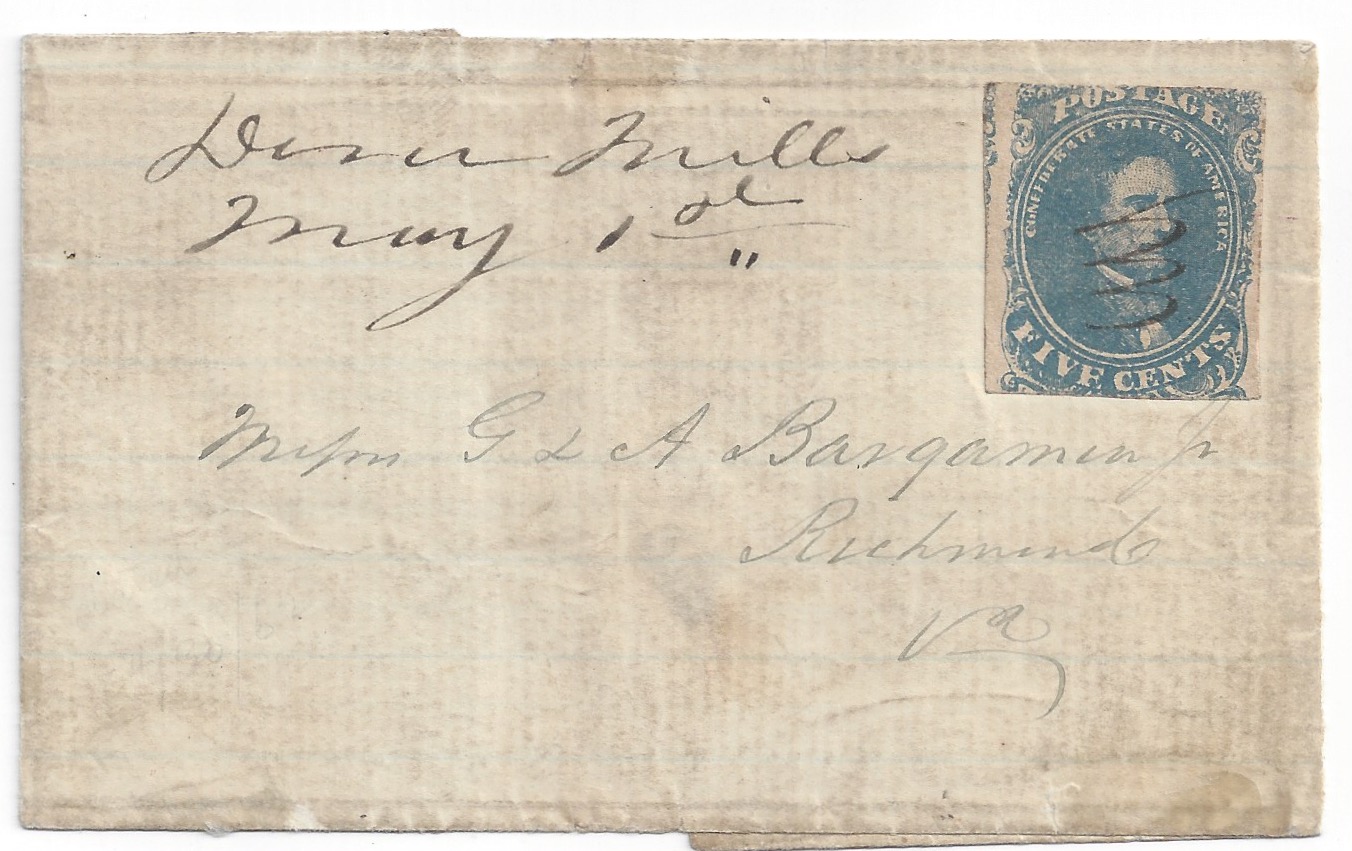 Dover Mills
May 1st "
POSTAGE
CONFEDERATE STATES OF AMERICA
FIVE CENTS
Messrs G & A Bargamin Jr
Richmond
Va